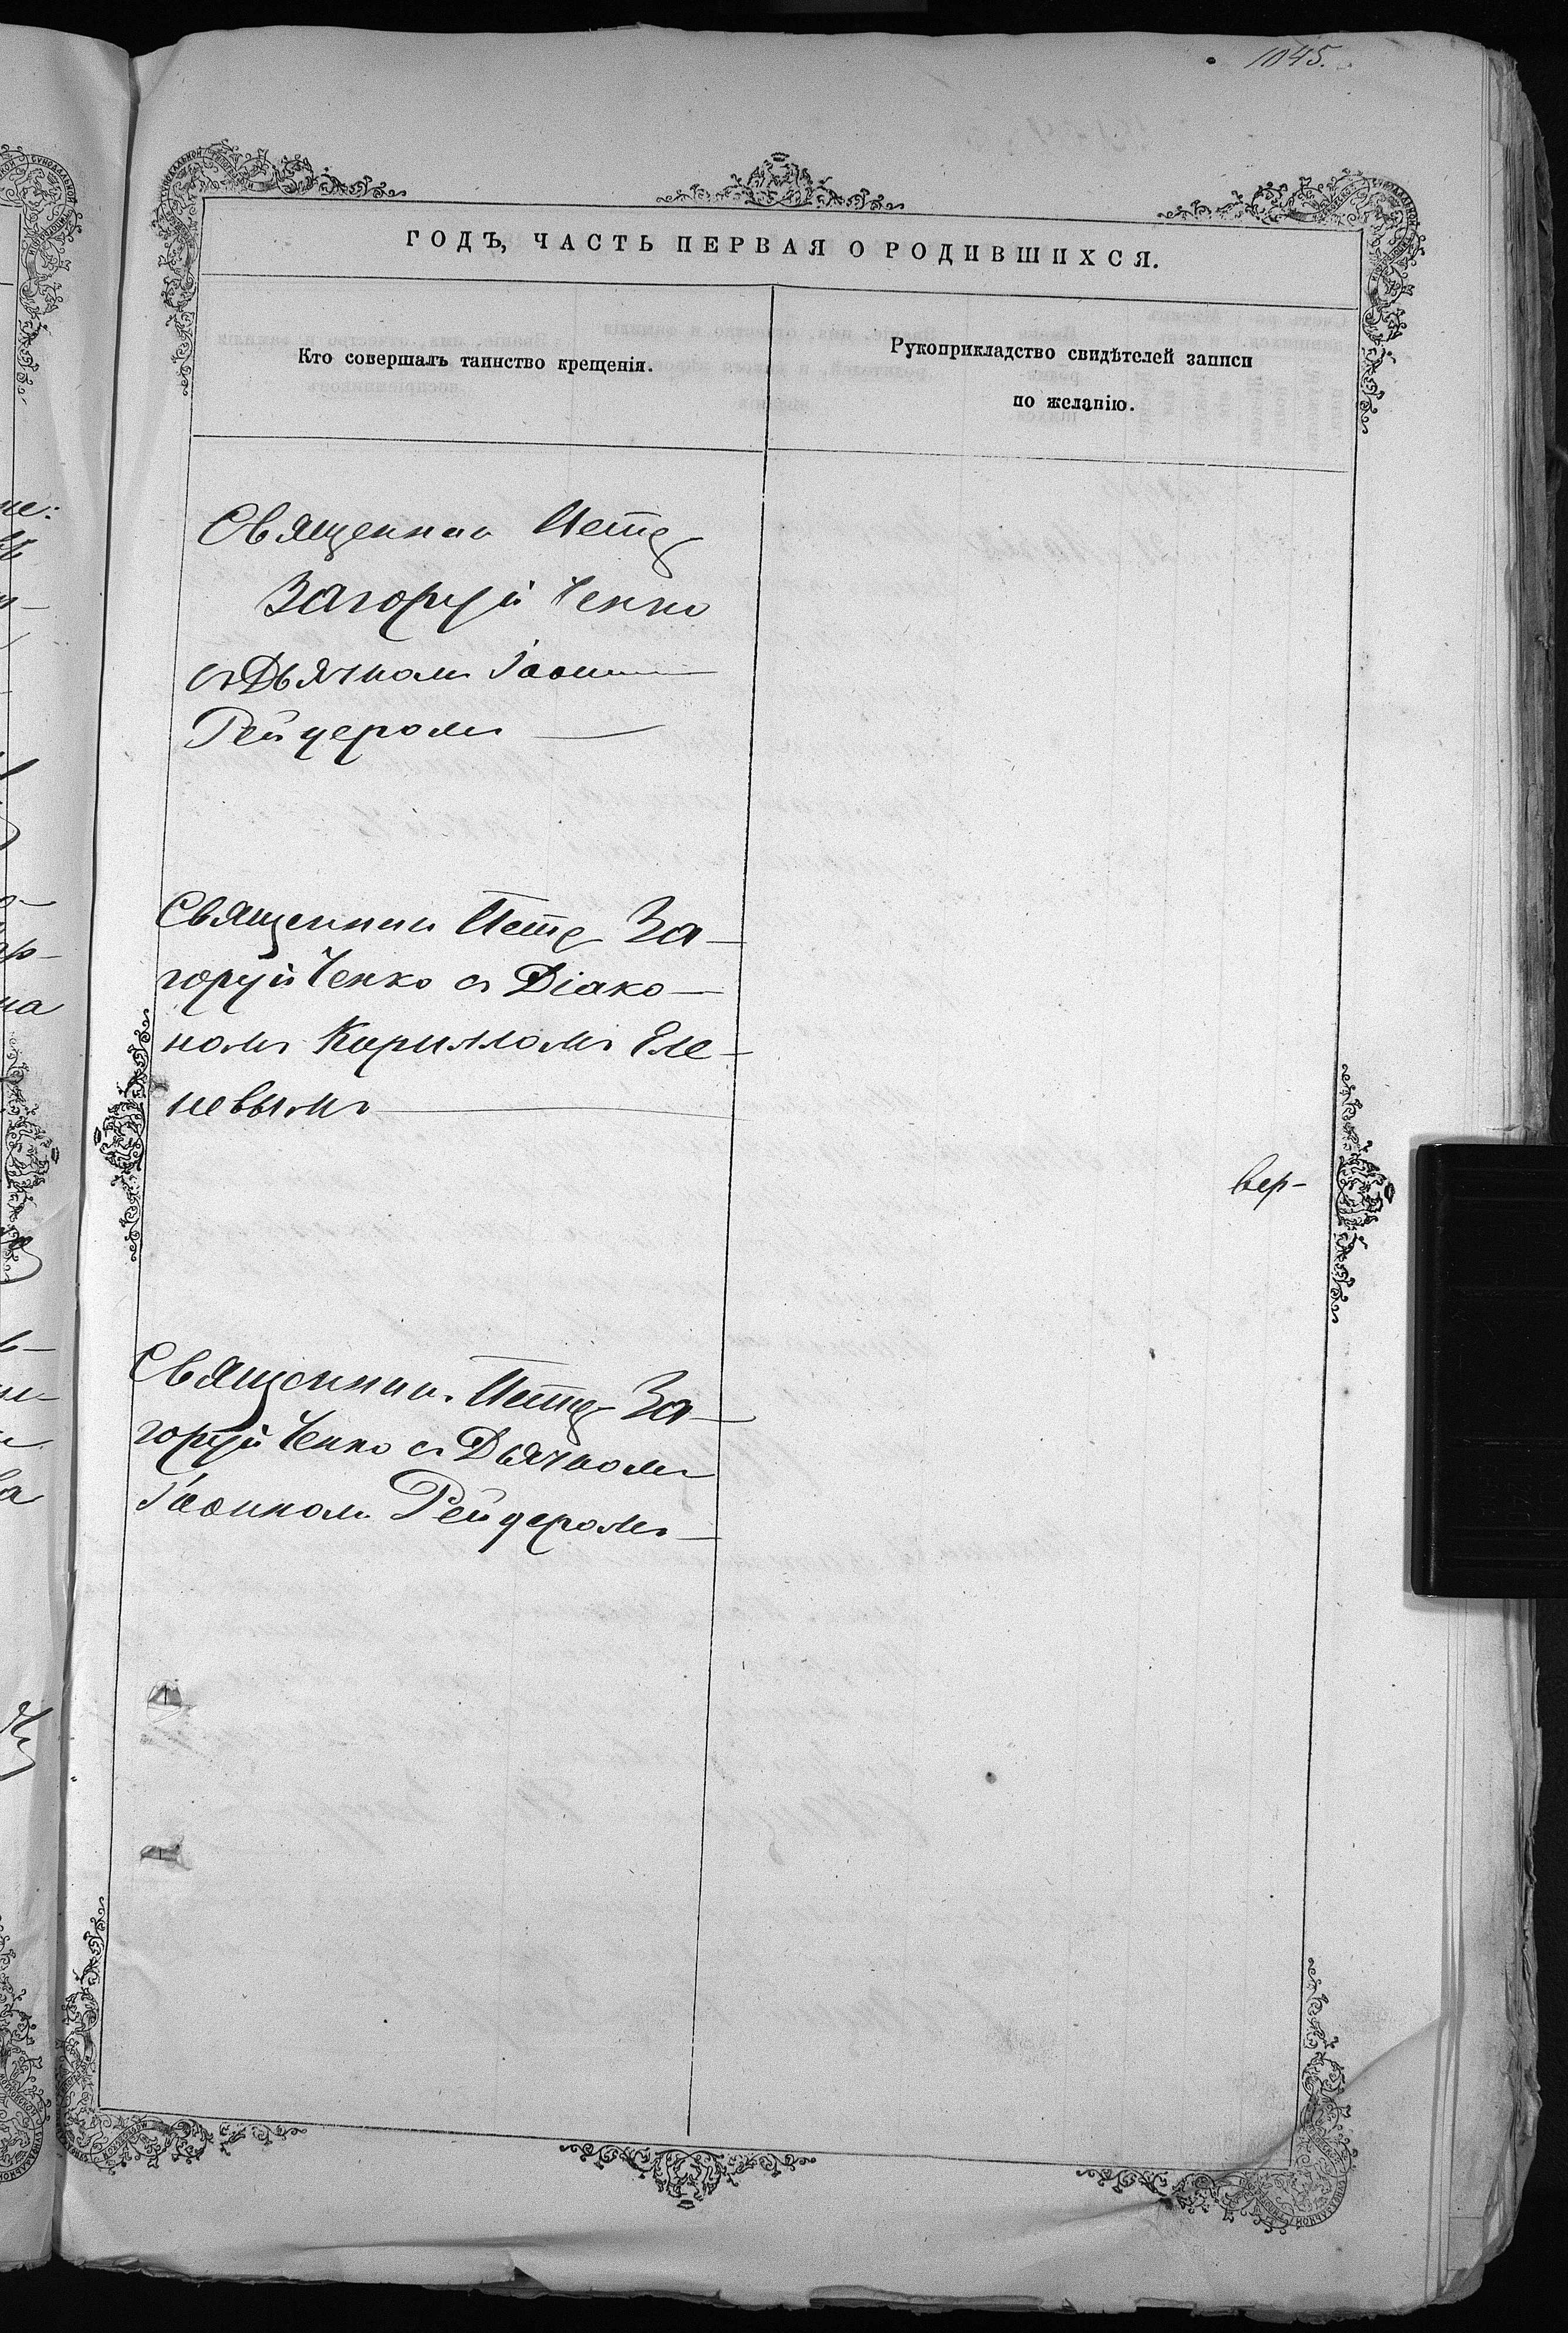 1045.
ГОДЪ, ЧАСТЬ ПЕРВАЯ О РОДИВШИХСЯ.
Кто совершалъ таинство крещенія.
Рукоприкладство свидѣтелей записи
по желанію.
Священник Петръ
Загоруйченко
съ Дьячкомъ
Рейдеромъ —
Священник Петръ За-
горуйченко съ Діако-
номъ Кирилломъ Еле-
невымъ —
вер-
Священник Петръ За-
горуйченко съ Дьячкомъ
Рейдеромъ —